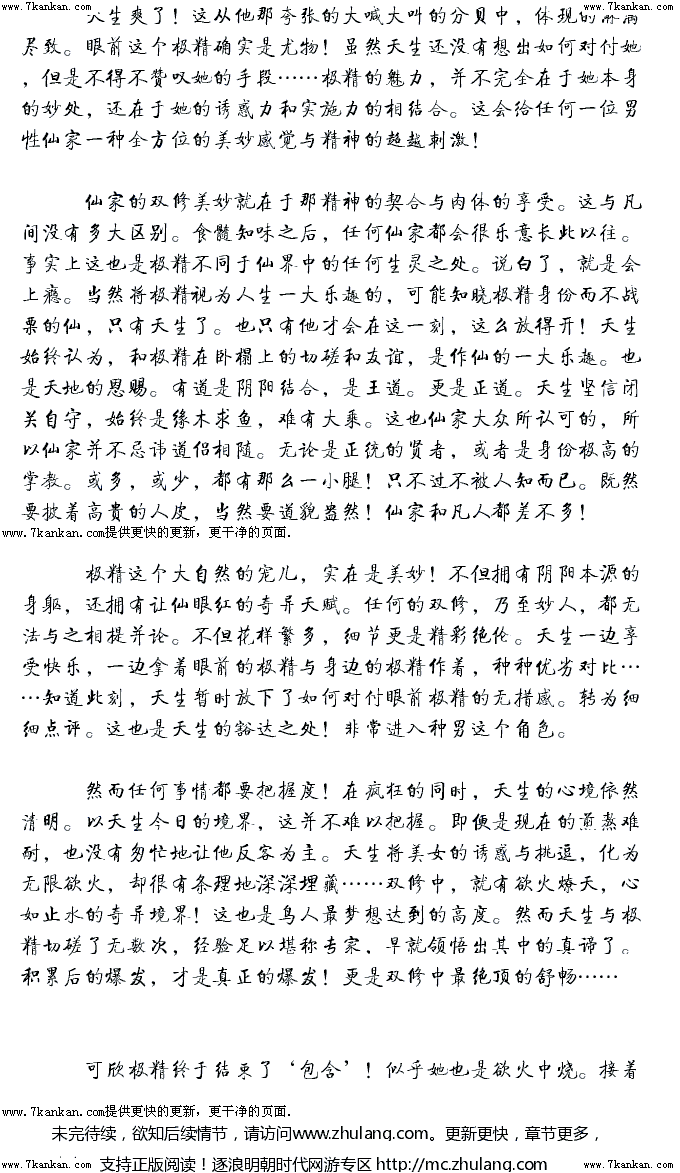 www.7kankan.com www.7kankan.com www.7kankan.com
天生爽了！这从他那夸张的大喊大叫的分贝中，体现的淋漓
尽致。眼前这个极精确实是尤物！虽然天生还没有想出如何对付她
，但是不得不赞叹她的手段……极精的魅力，并不完全在于她本身
的妙处，还在于她的诱惑力和实施力的相结合。这会给任何一位男
性仙家一种全方位的美妙感觉与精神的超越刺激！
仙家的双修美妙就在于那精神的契合与肉体的享受。这与凡
间没有多大区别。食髓知味之后，任何仙家都会很乐意长此以往。
事实上这也是极精不同于仙界中的任何生灵之处。说白了，就是会
上瘾。当然将极精视为人生一大乐趣的，可能知晓极精身份而不战
栗的仙，只有天生了。也只有他才会在这一刻，这么放得开！天生
始终认为，和极精在卧榻上的切磋和友谊，是作仙的一大乐趣。也
是天地的恩赐。有道是阴阳结合，是王道。更是正道。天生坚信闭
关自守，始终是缘木求鱼，难有大乘。这也仙家大众所认可的，所
以仙家并不忌讳道侣相随。无论是正统的贤者，或者是身份极高的
掌教。或多，或少，都有那么一小腿！只不过不被人知而已。既然
要披着高贵的人皮，当然要道貌盎然！仙家和凡人都差不多！
www.7kankan.com提供更快的更新，更干净的页面.
极精这个大自然的宠儿，实在是美妙！不但拥有阴阳本源的
身躯，还拥有让仙眼红的奇异天赋。任何的双修，乃至妙人，都无
法与之相提并论。不但花样繁多，细节更是精彩绝伦。天生一边享
受快乐，一边拿着眼前的极精与身边的极精作着，种种优劣对比…
…知道此刻，天生暂时放下了如何对付眼前极精的无措感。转为细
细点评。这也是天生的豁达之处！非常进入种男这个角色。
然而任何事情都要把握度！在疯狂的同时，天生的心境依然
清明。以天生今日的境界，这并不难以把握。即便是现在的煎熬难
耐，也没有匆忙地让他反客为主。天生将美女的诱惑与挑逗，化为
无限欲火，却很有条理地深深埋藏……双修中，就有欲火燎天，心
如止水的奇异境界！这也是鸟人最梦想达到的高度。然而天生与极
精切磋了无数次，经验足以堪称专家，早就领悟出其中的真谛了。
积累后的爆发，才是真正的爆发！更是双修中最绝顶的舒畅……
可欣极精终于结束了‘包含’！似乎她也是欲火中烧。接着
www.7kankan.com提供更快的更新，更干净的页面.
未完待续，欲知后续情节，请访问www.zhulang.com。更新更快，章节更多，
支持正版阅读！逐浪明朝时代网游专区 http://mc.zhulang.com
www.7kankan.com www.7kankan.com